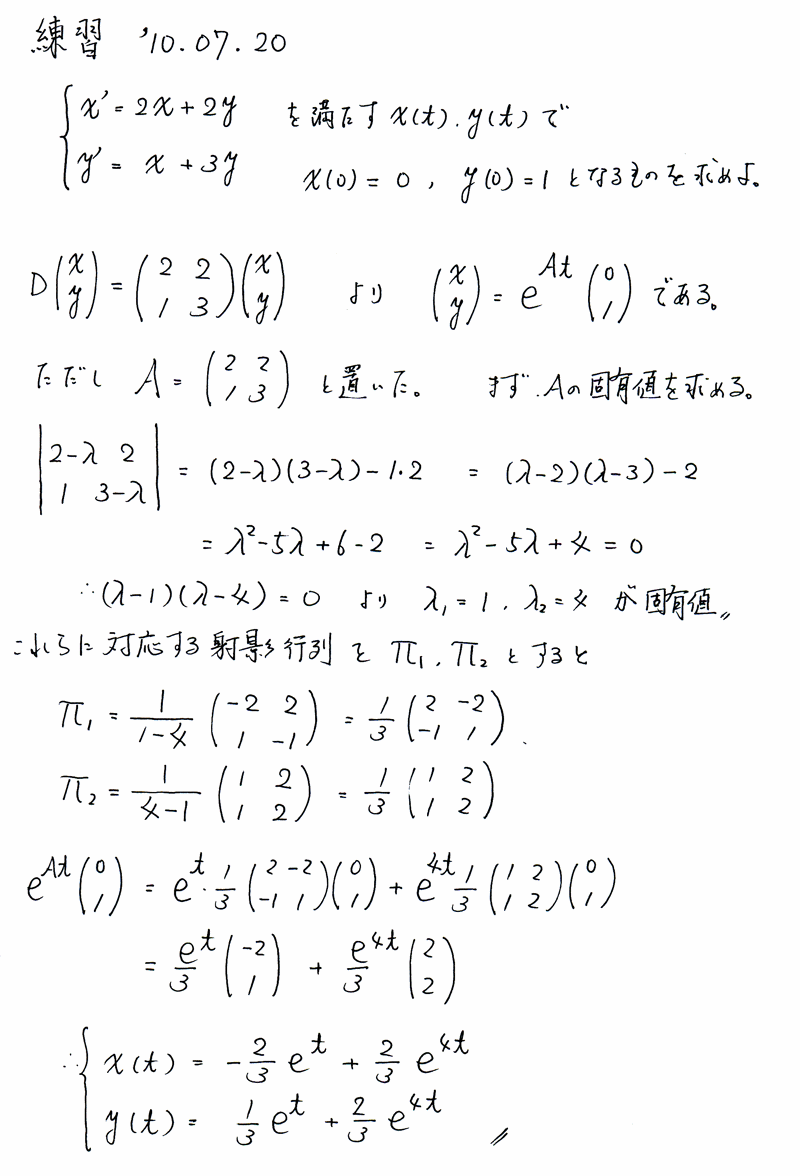 練習 '10.07.20
{ x' = 2x + 2y を満たす x(t), y(t) で
y' = x + 3y x(0) = 0, y(0) = 1 となるものを求めよ。
D(x y) = (2 2 1 3)(x y) より (x y) = e^{At}(0 1) である。
ただし A = (2 2 1 3) と置いた。 まず、Aの固有値を求める。
|2-λ 2 1 3-λ| = (2-λ)(3-λ)-1・2 = (λ-2)(λ-3)-2
= λ²-5λ+6-2 = λ²-5λ+4 = 0
∴(λ-1)(λ-4) = 0 より λ₁ = 1, λ₂ = 4 が固有値〃
これらに対応する射影行列を π₁, π₂ とすると
π₁ = 1/(1-4) (-2 2 1 -1) = 1/3 (2 -2 -1 1).
π₂ = 1/(4-1) (1 2 1 2) = 1/3 (1 2 1 2)
e^{At}(0 1) = e^t・1/3 (2 -2 -1 1)(0 1) + e^{4t} 1/3 (1 2 1 2)(0 1)
= e^t/3 (-2 1) + e^{4t}/3 (2 2)
∴{ x(t) = -2/3 e^t + 2/3 e^{4t}
y(t) = 1/3 e^t + 2/3 e^{4t} 〃